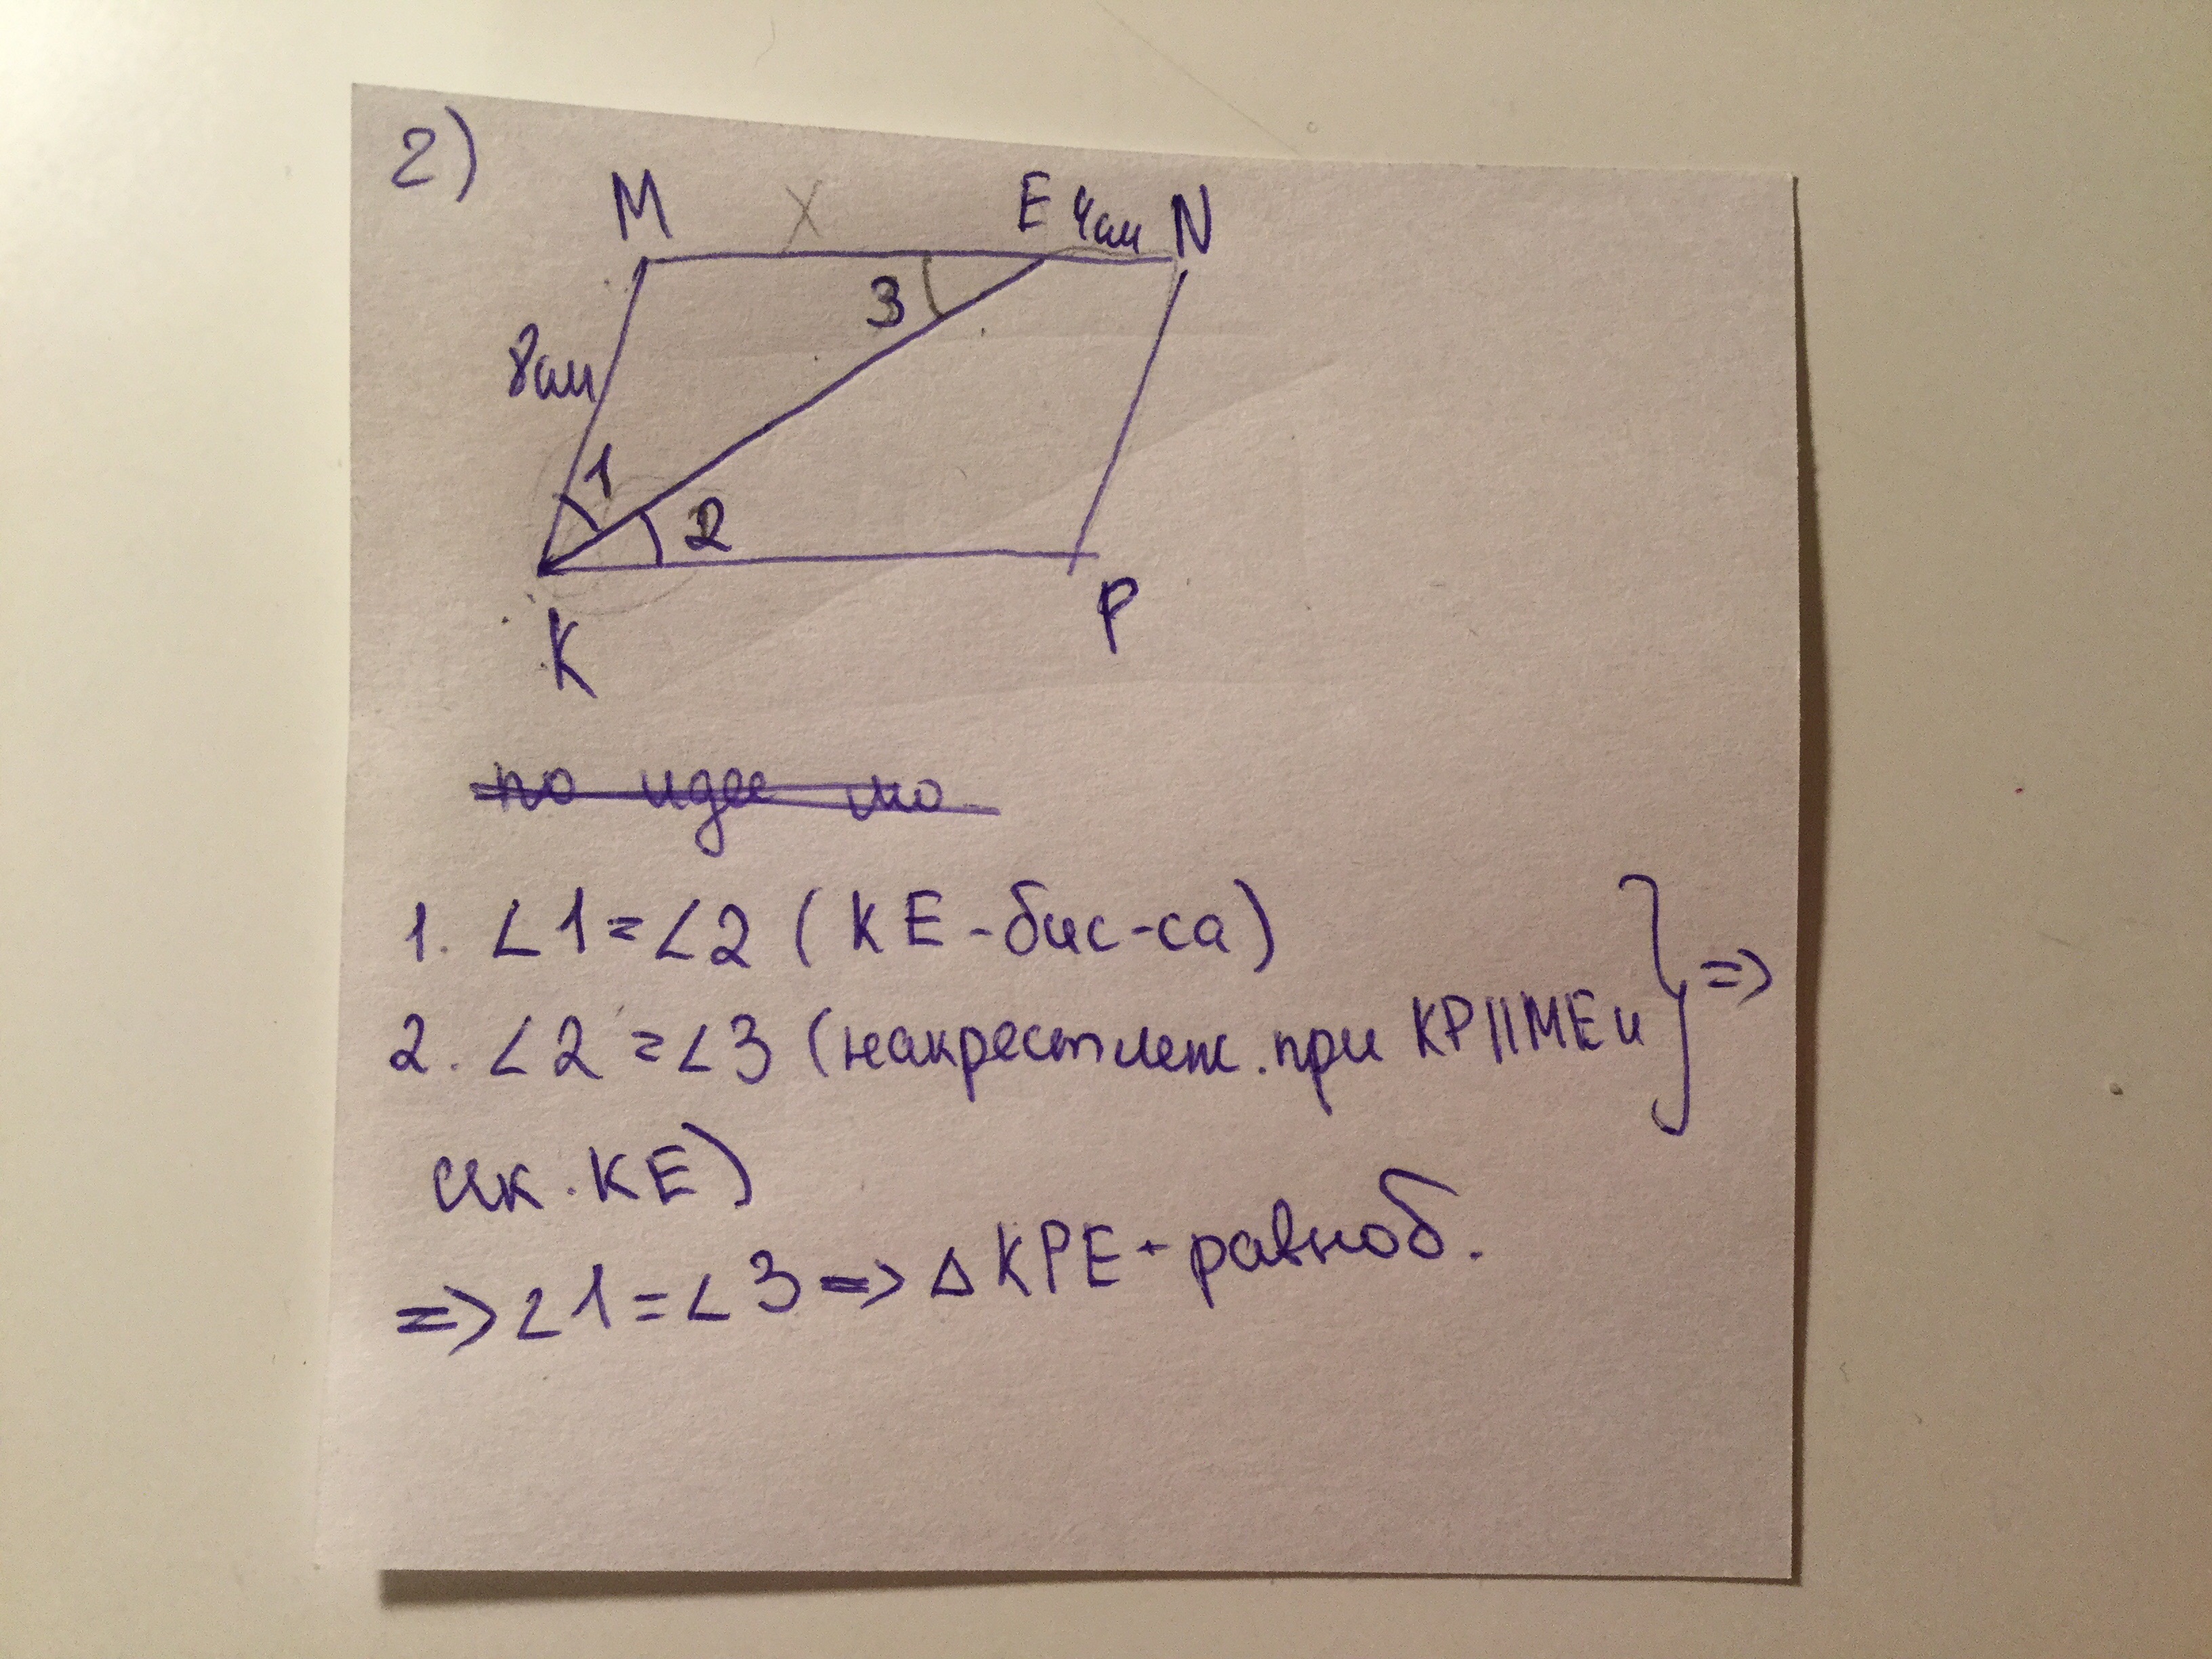 2)
M X E 4см N
3
8см
1
2
K P
по идее мо
1. ∠1=∠2 (KE-бис-са)
2. ∠2=∠3 (накрестлеж.при KP||MEи } =>
сек.KE)
=>∠1=∠3=>△KPE-равноб.